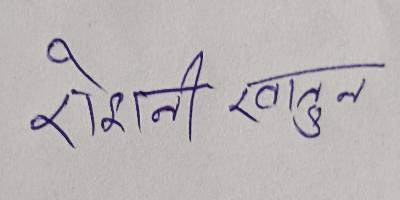 रोशनी खातुन